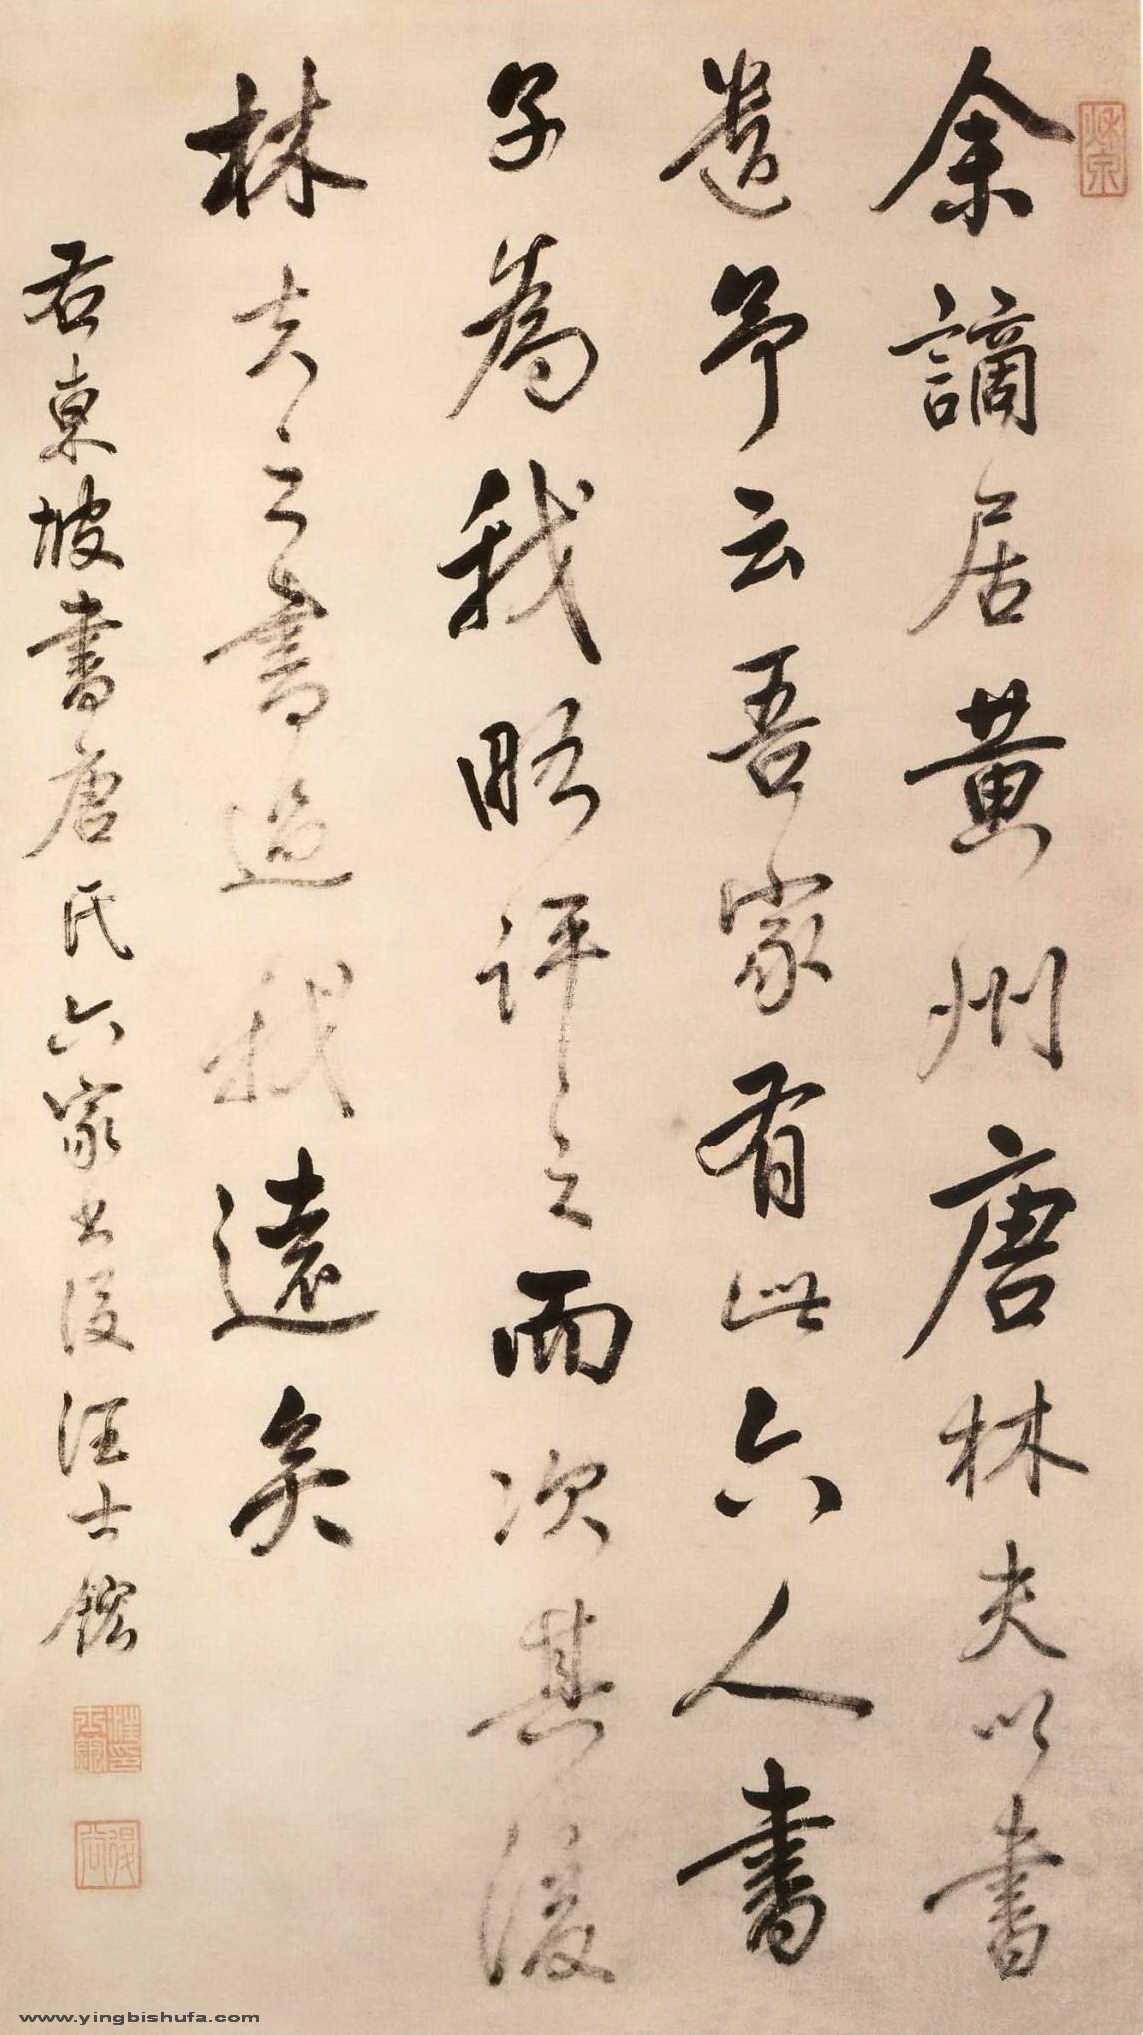 余謫居黃州唐林夫以書
遺予云吾家有此六人書
子為我略評之而次其後
林夫之書過我遠矣
右東坡書唐氏六家書後汪士鋐
www.yingbishufa.com